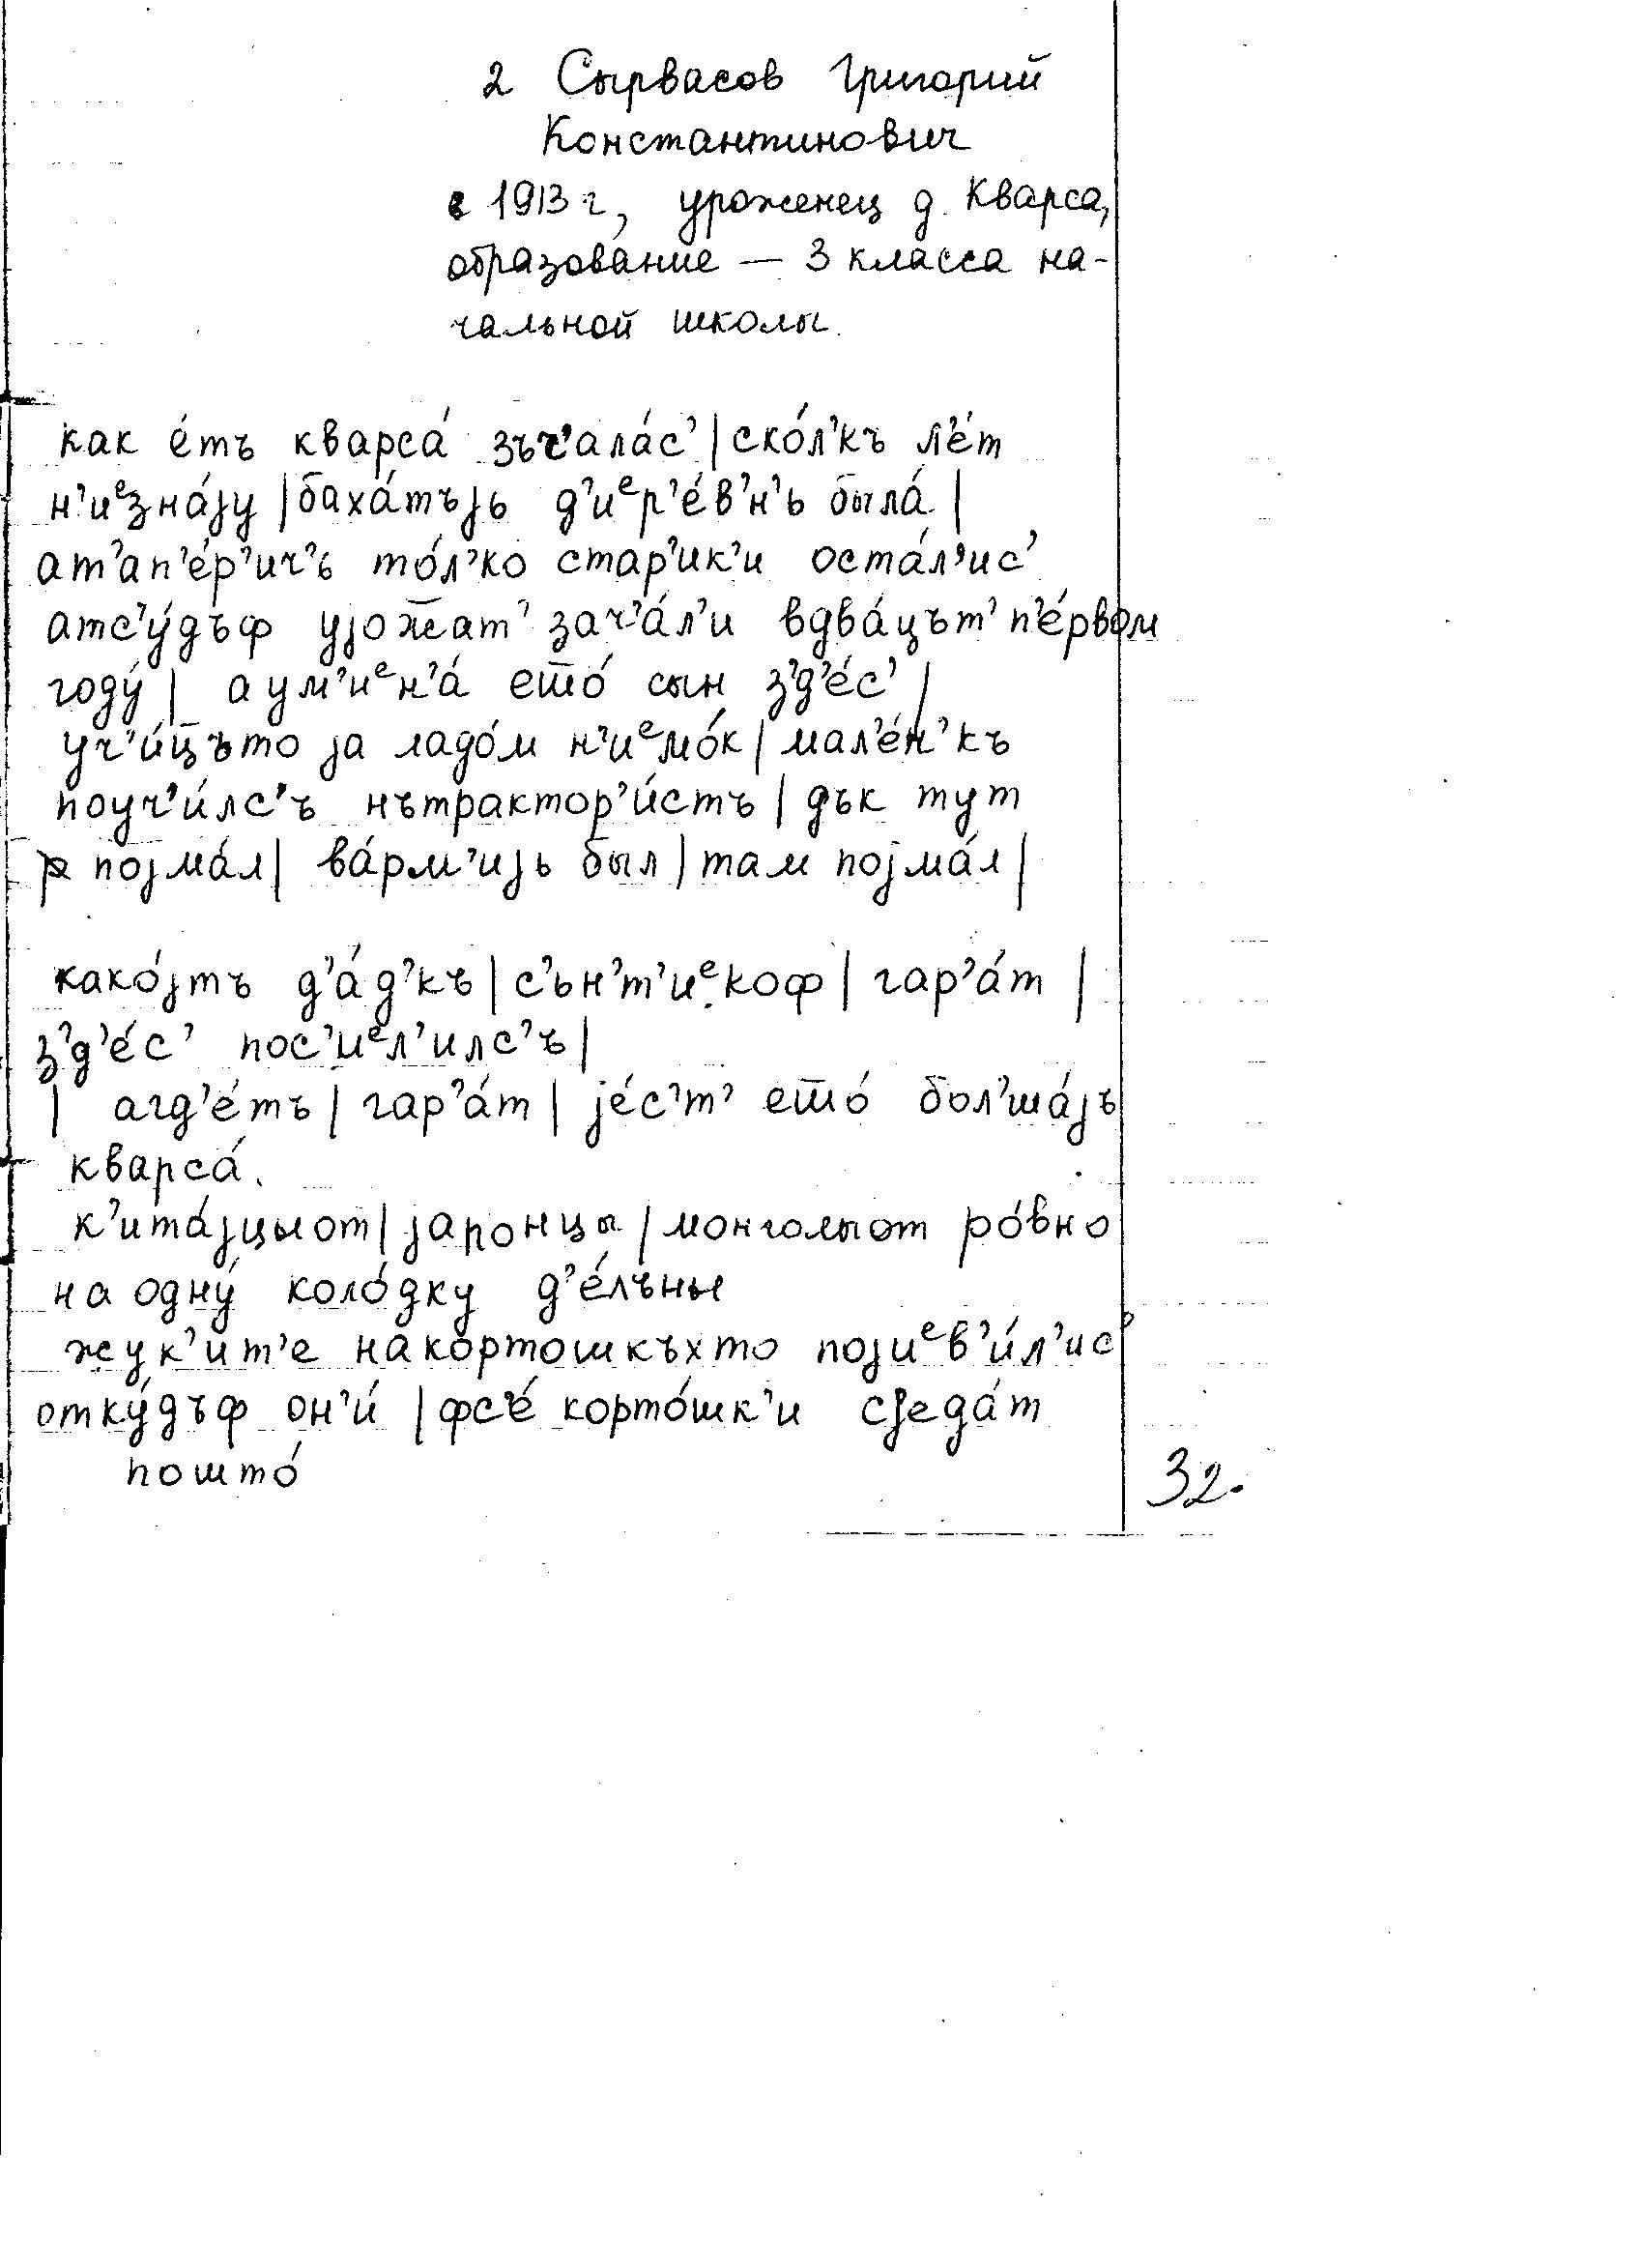 2 Сырвасов Григорий
Константинович
с 1913 г, уроженец д. Кварса,
образование — 3 класса на-
чальной школы.
как е́тъ кварса́ зъч'ала́с' | ско́л'къ л'е́т
н'иᵉзна́jу | баха́тъjь д'иᵉр'е́в'н'ь была́ |
ат'ап'е́р'ич'ь то́л'ко стар'ик'и оста́л'ис'
атс'у́дъф уjож̅ат' зач'а́л'и вдва́цът' п'е́рвом
году́ | а ум'иᵉн'а́ ет̅о́ сын з'д'е́с' |
уч'и́ц̅ъто jа ладо́м н'иᵉмо́к | мал'е́н'къ
поуч'и́лс'ъ нътрактор'и́стъ | дък тут
поjма́л | ва́рм'иjь был | там поjма́л |
како́jтъ д'а́д'къ | с'ьн'т'иᵉкоф | гар'а́т |
з'д'е́с' пос'иᵉл'илс'ъ |
| агд'е́тъ | гар'а́т | jе́с'т' ет̅о́ бол'ша́jъ
кварса́.
к'ита́jцыот | jапонцы | монголыот ро́вно
на одну́ коло́дку д'е́лъны
жук'ит'е накортошкъхто поjиᵉв'и́л'ис'
отку́дъф он'и́ | фс'е́ корто́шк'и сjеда́т
пошто́
32.